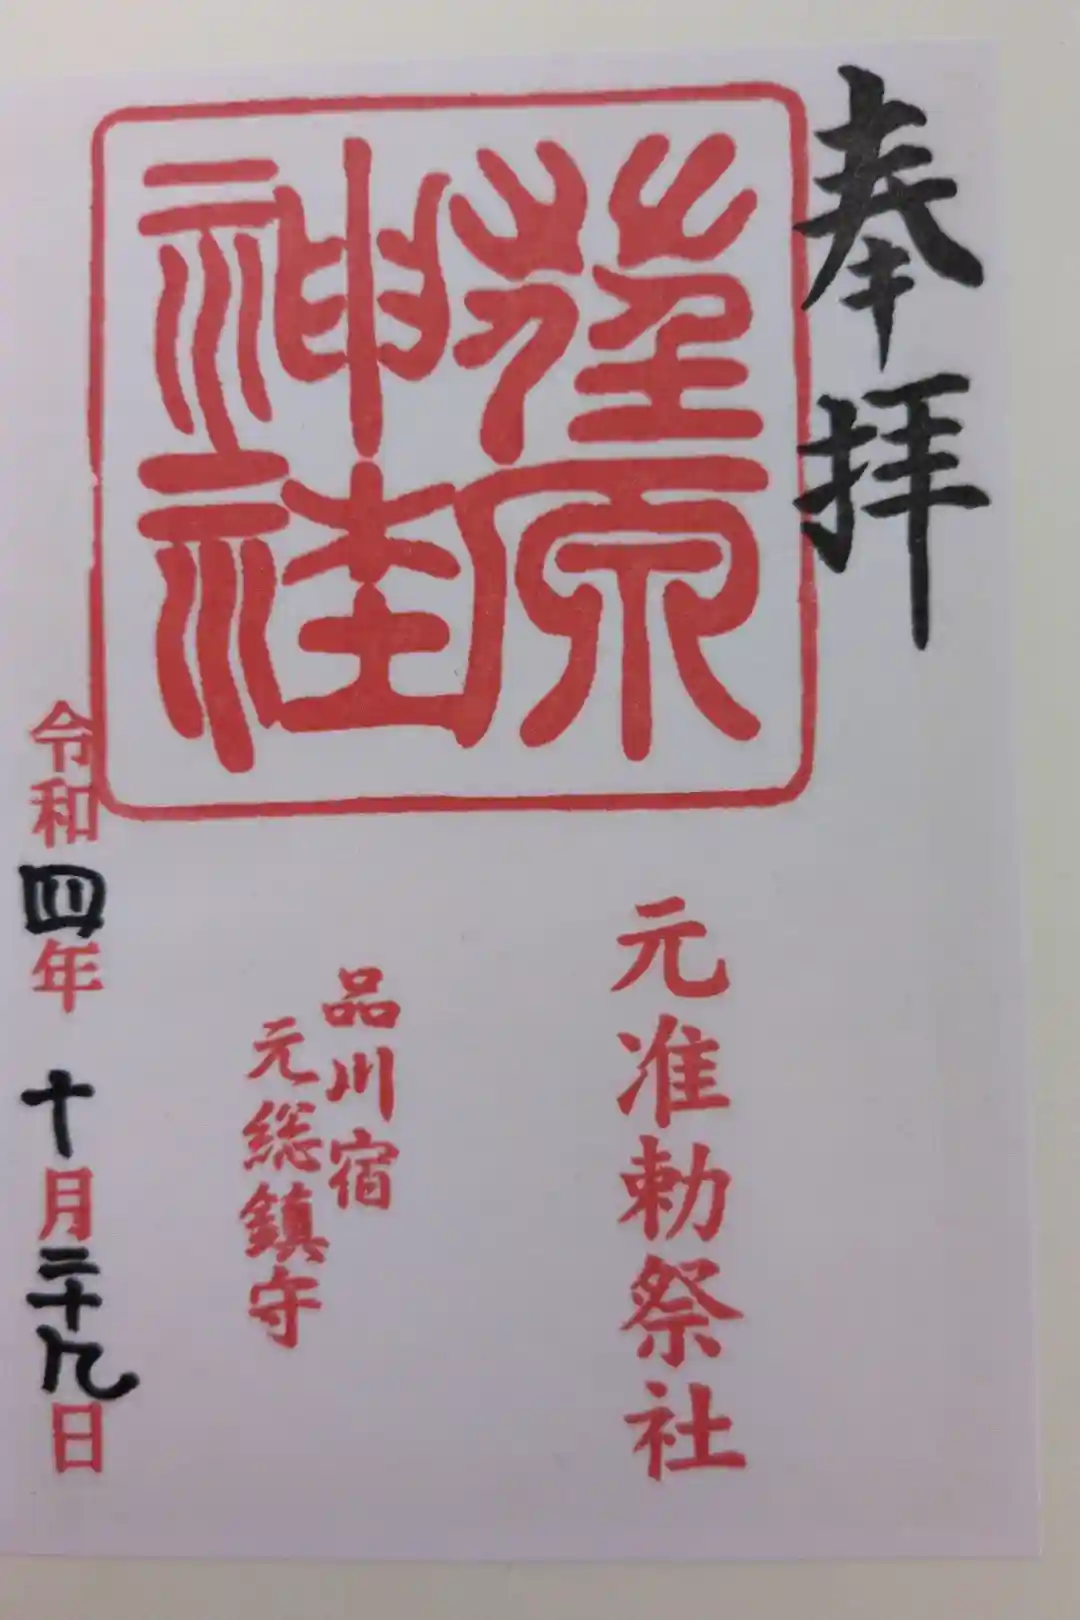 奉拝
荏原
神社
元准勅祭社
品川宿
元総鎮守
令和四年 十月二十九日